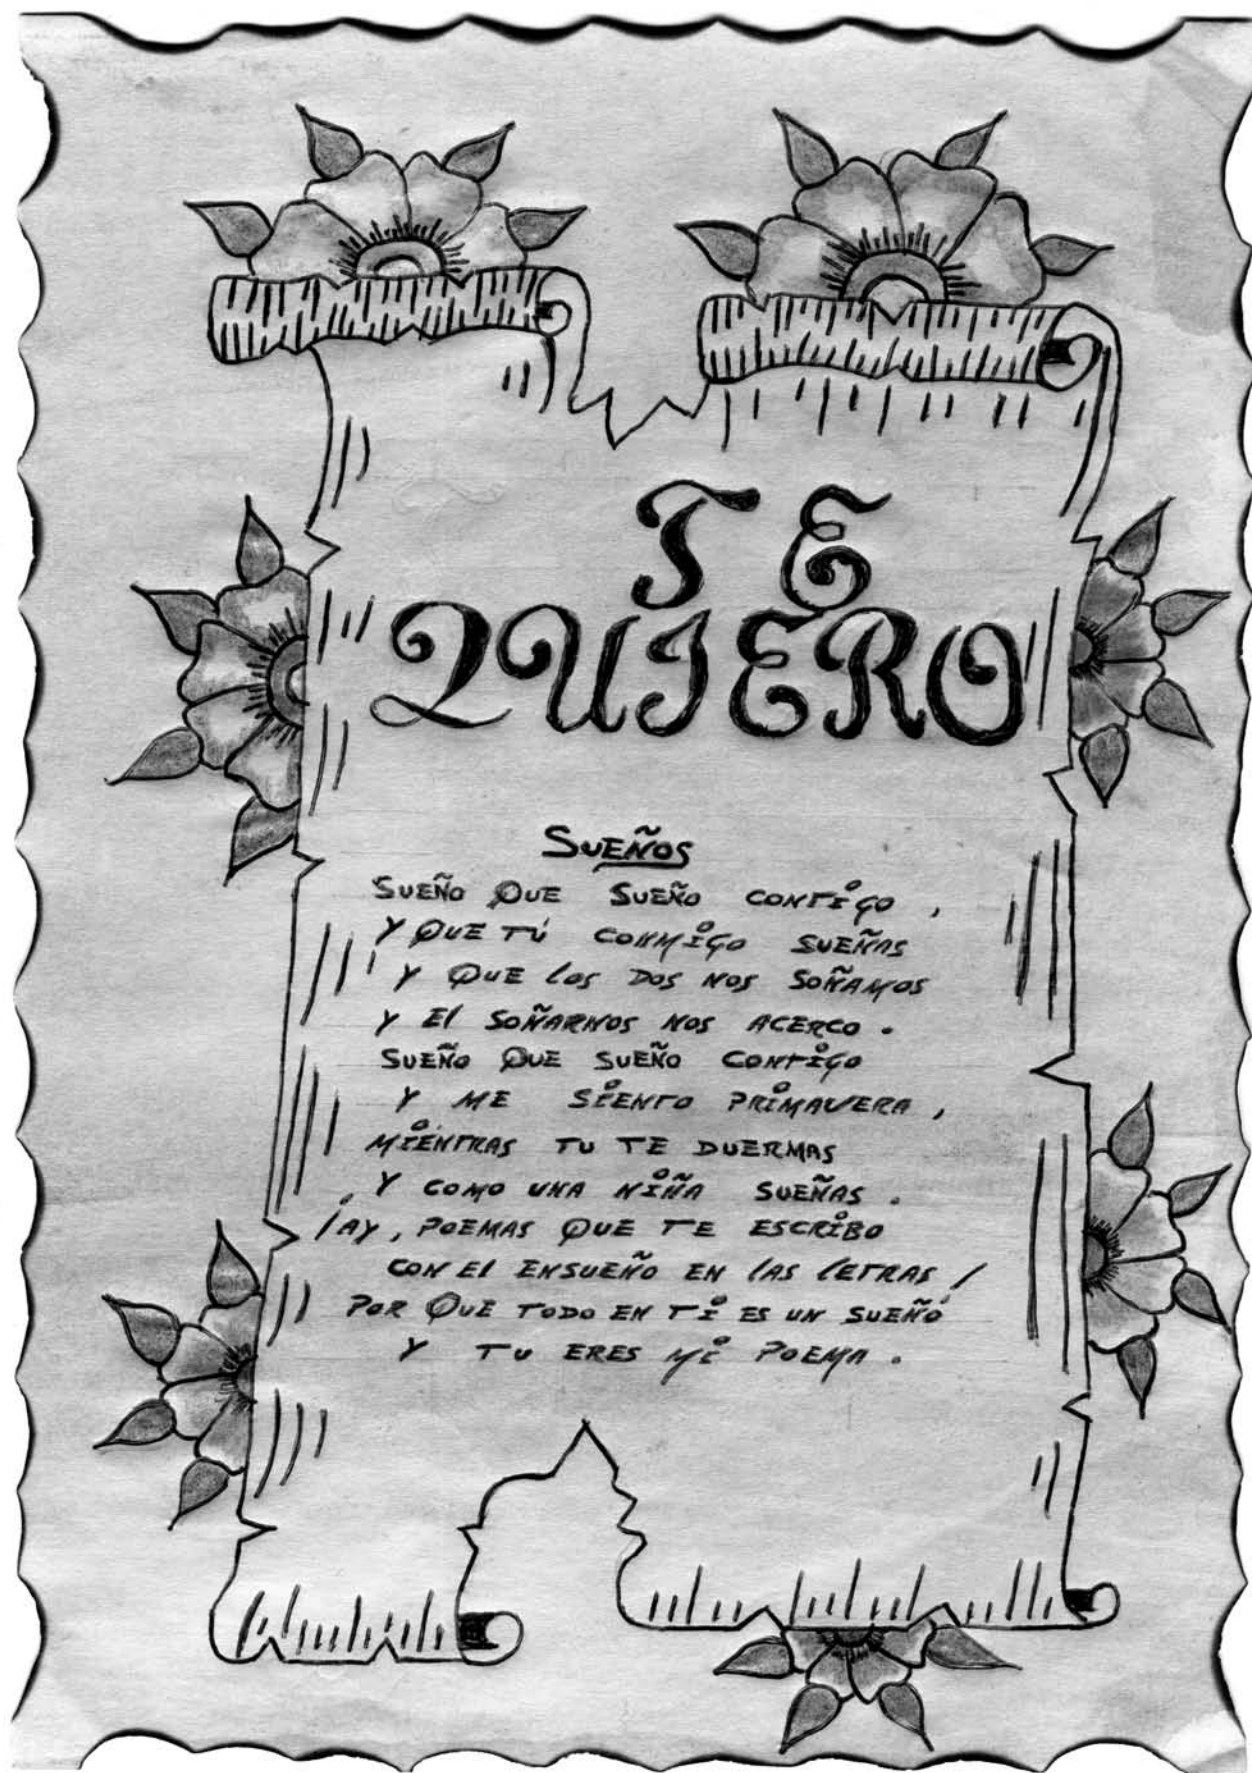 TE
QUIERO
SUEÑOS
SUEÑO QUE SUEÑO CONTIGO,
Y QUE TÚ CONMIGO SUEÑAS
Y QUE LOS DOS NOS SOÑAMOS
Y El SOÑARNOS NOS ACERCO.
SUEÑO QUE SUEÑO CONTIGO
Y ME SIENTO PRIMAVERA,
MIENTRAS TU TE DUERMAS
Y COMO UNA NIÑA SUEÑAS.
¡AY, POEMAS QUE TE ESCRIBO
CON El ENSUEÑO EN LAS LETRAS!
POR QUE TODO EN TI ES UN SUEÑO
Y TU ERES MI POEMA.